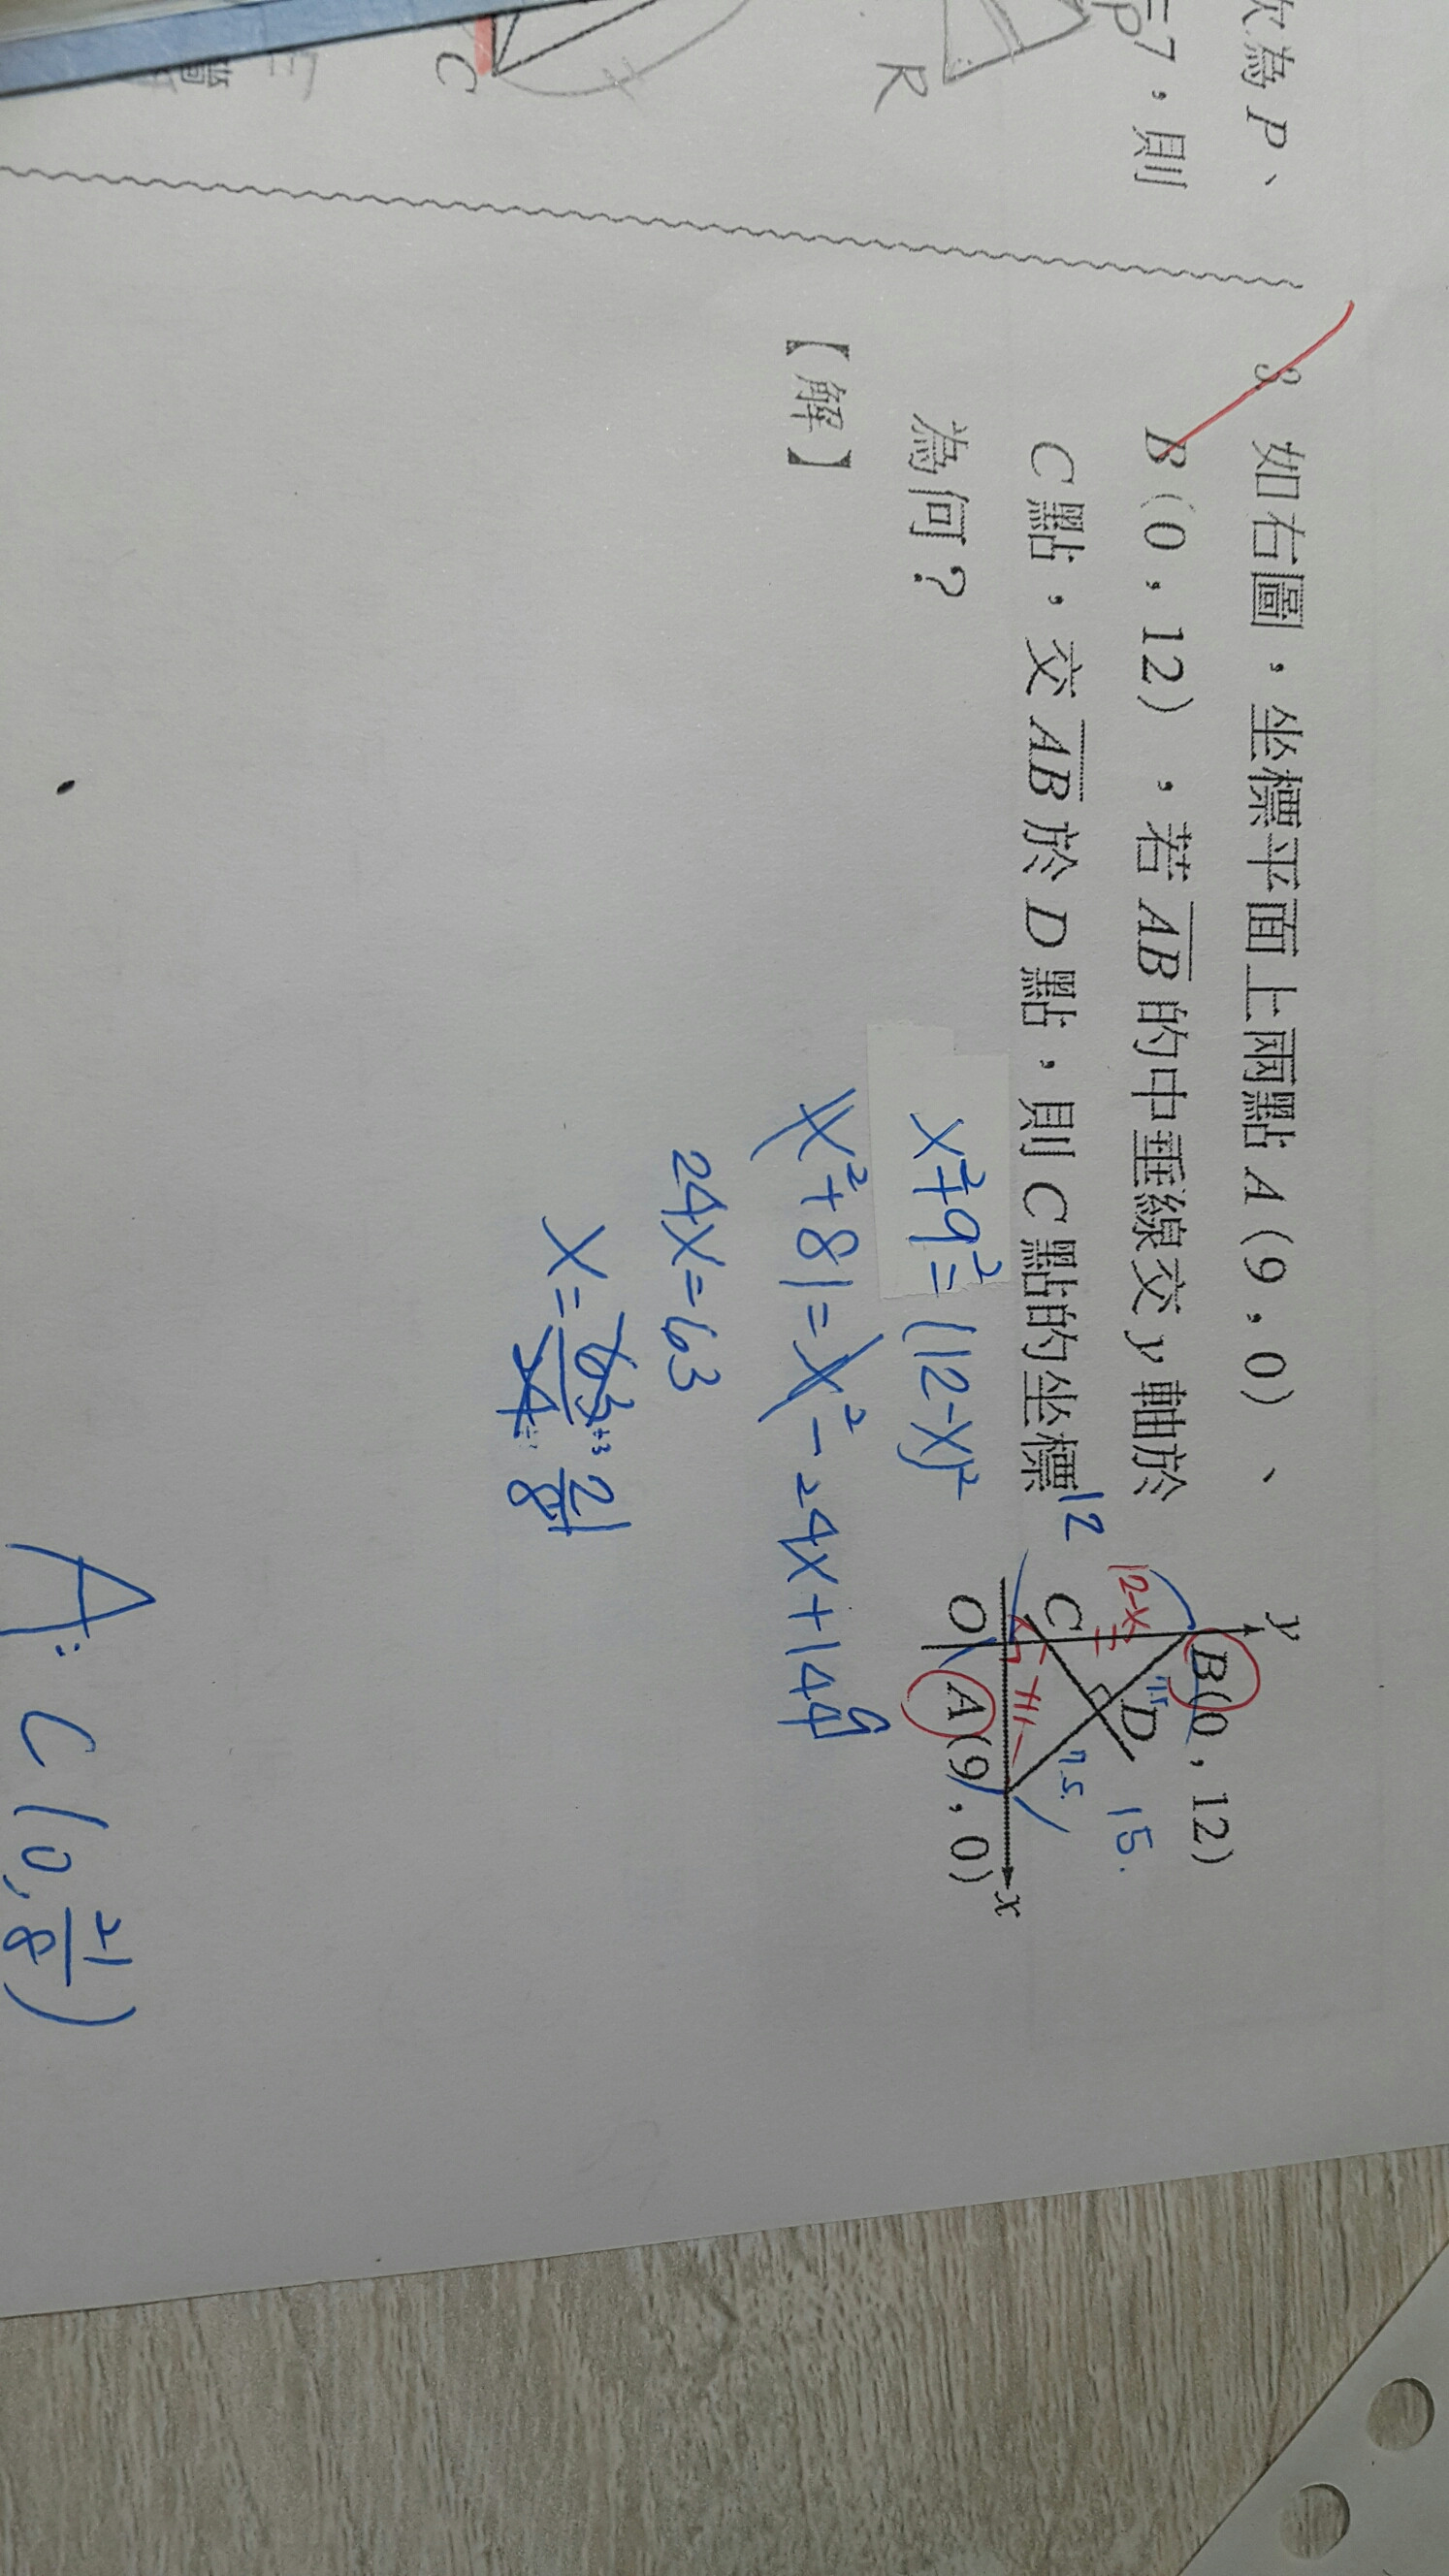 次為 P、
=7，則
P
R
C
3. 如右圖，坐標平面上兩點 A(9，0)、
B(0，12)，若 AB 的中垂線交 y 軸於
C 點，交 AB 於 D 點，則 C 點的坐標
為何？
【解】
y
B(0，12)
12-x
7.5
D
15.
12
C
7.5
x
O
A(9，0)
9
x²+9²=(12-x)²
x²+81=x²-24x+144
24x=63
x=63÷3/24÷3=21/8
A: C(0, 21/8)